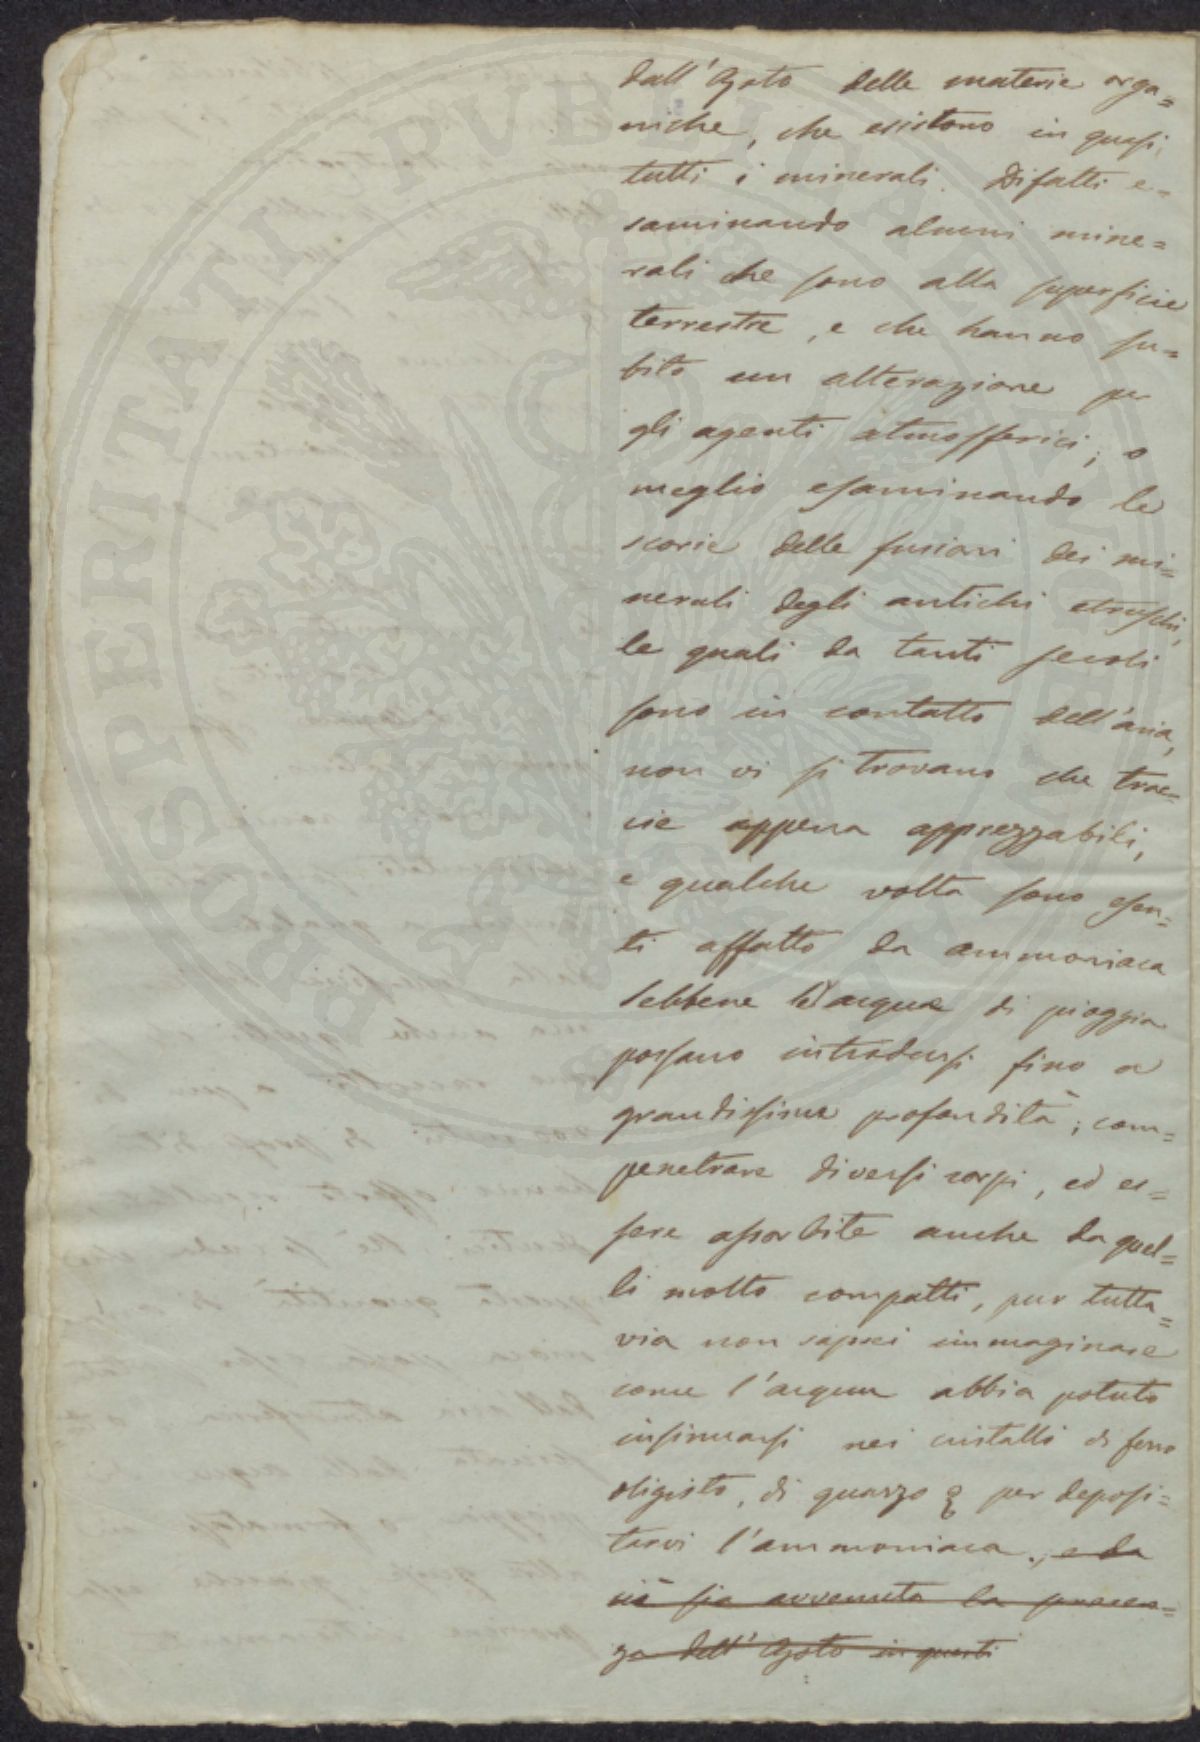 dall'Azoto delle materie orga=
niche, che esistono in quasi
tutti i minerali. Difatti e=
saminando alcuni mine=
rali che sono alla superficie
terrestre, e che hanno su=
bito un alterazione per
gli agenti atmosferici, o
meglio esaminando le
scorie delle fusioni dei mi=
nerali degli antichi etruschi,
le quali da tanti secoli
sono in contatto dell'aria,
non vi si trovano che trac=
cie appena apprezzabili,
e qualche volta sono esen=
ti affatto da ammoniaca
Sebbene le acque di pioggia
possano introdursi fino a
grandissime profondità, com=
penetrare diversi corpi, ed es=
sere assorbite anche da quel=
li molto compatti, pur tutta=
via non saprei immaginare
come l'acqua abbia potuto
insinuarsi nei cristalli di ferro
oligisto, di quarzo per deposi=
tarvi l'ammoniaca., e da
ciò sia avvenuta la presen=
za dell'Azoto in questi
PROSPERITATI PUBLICAE